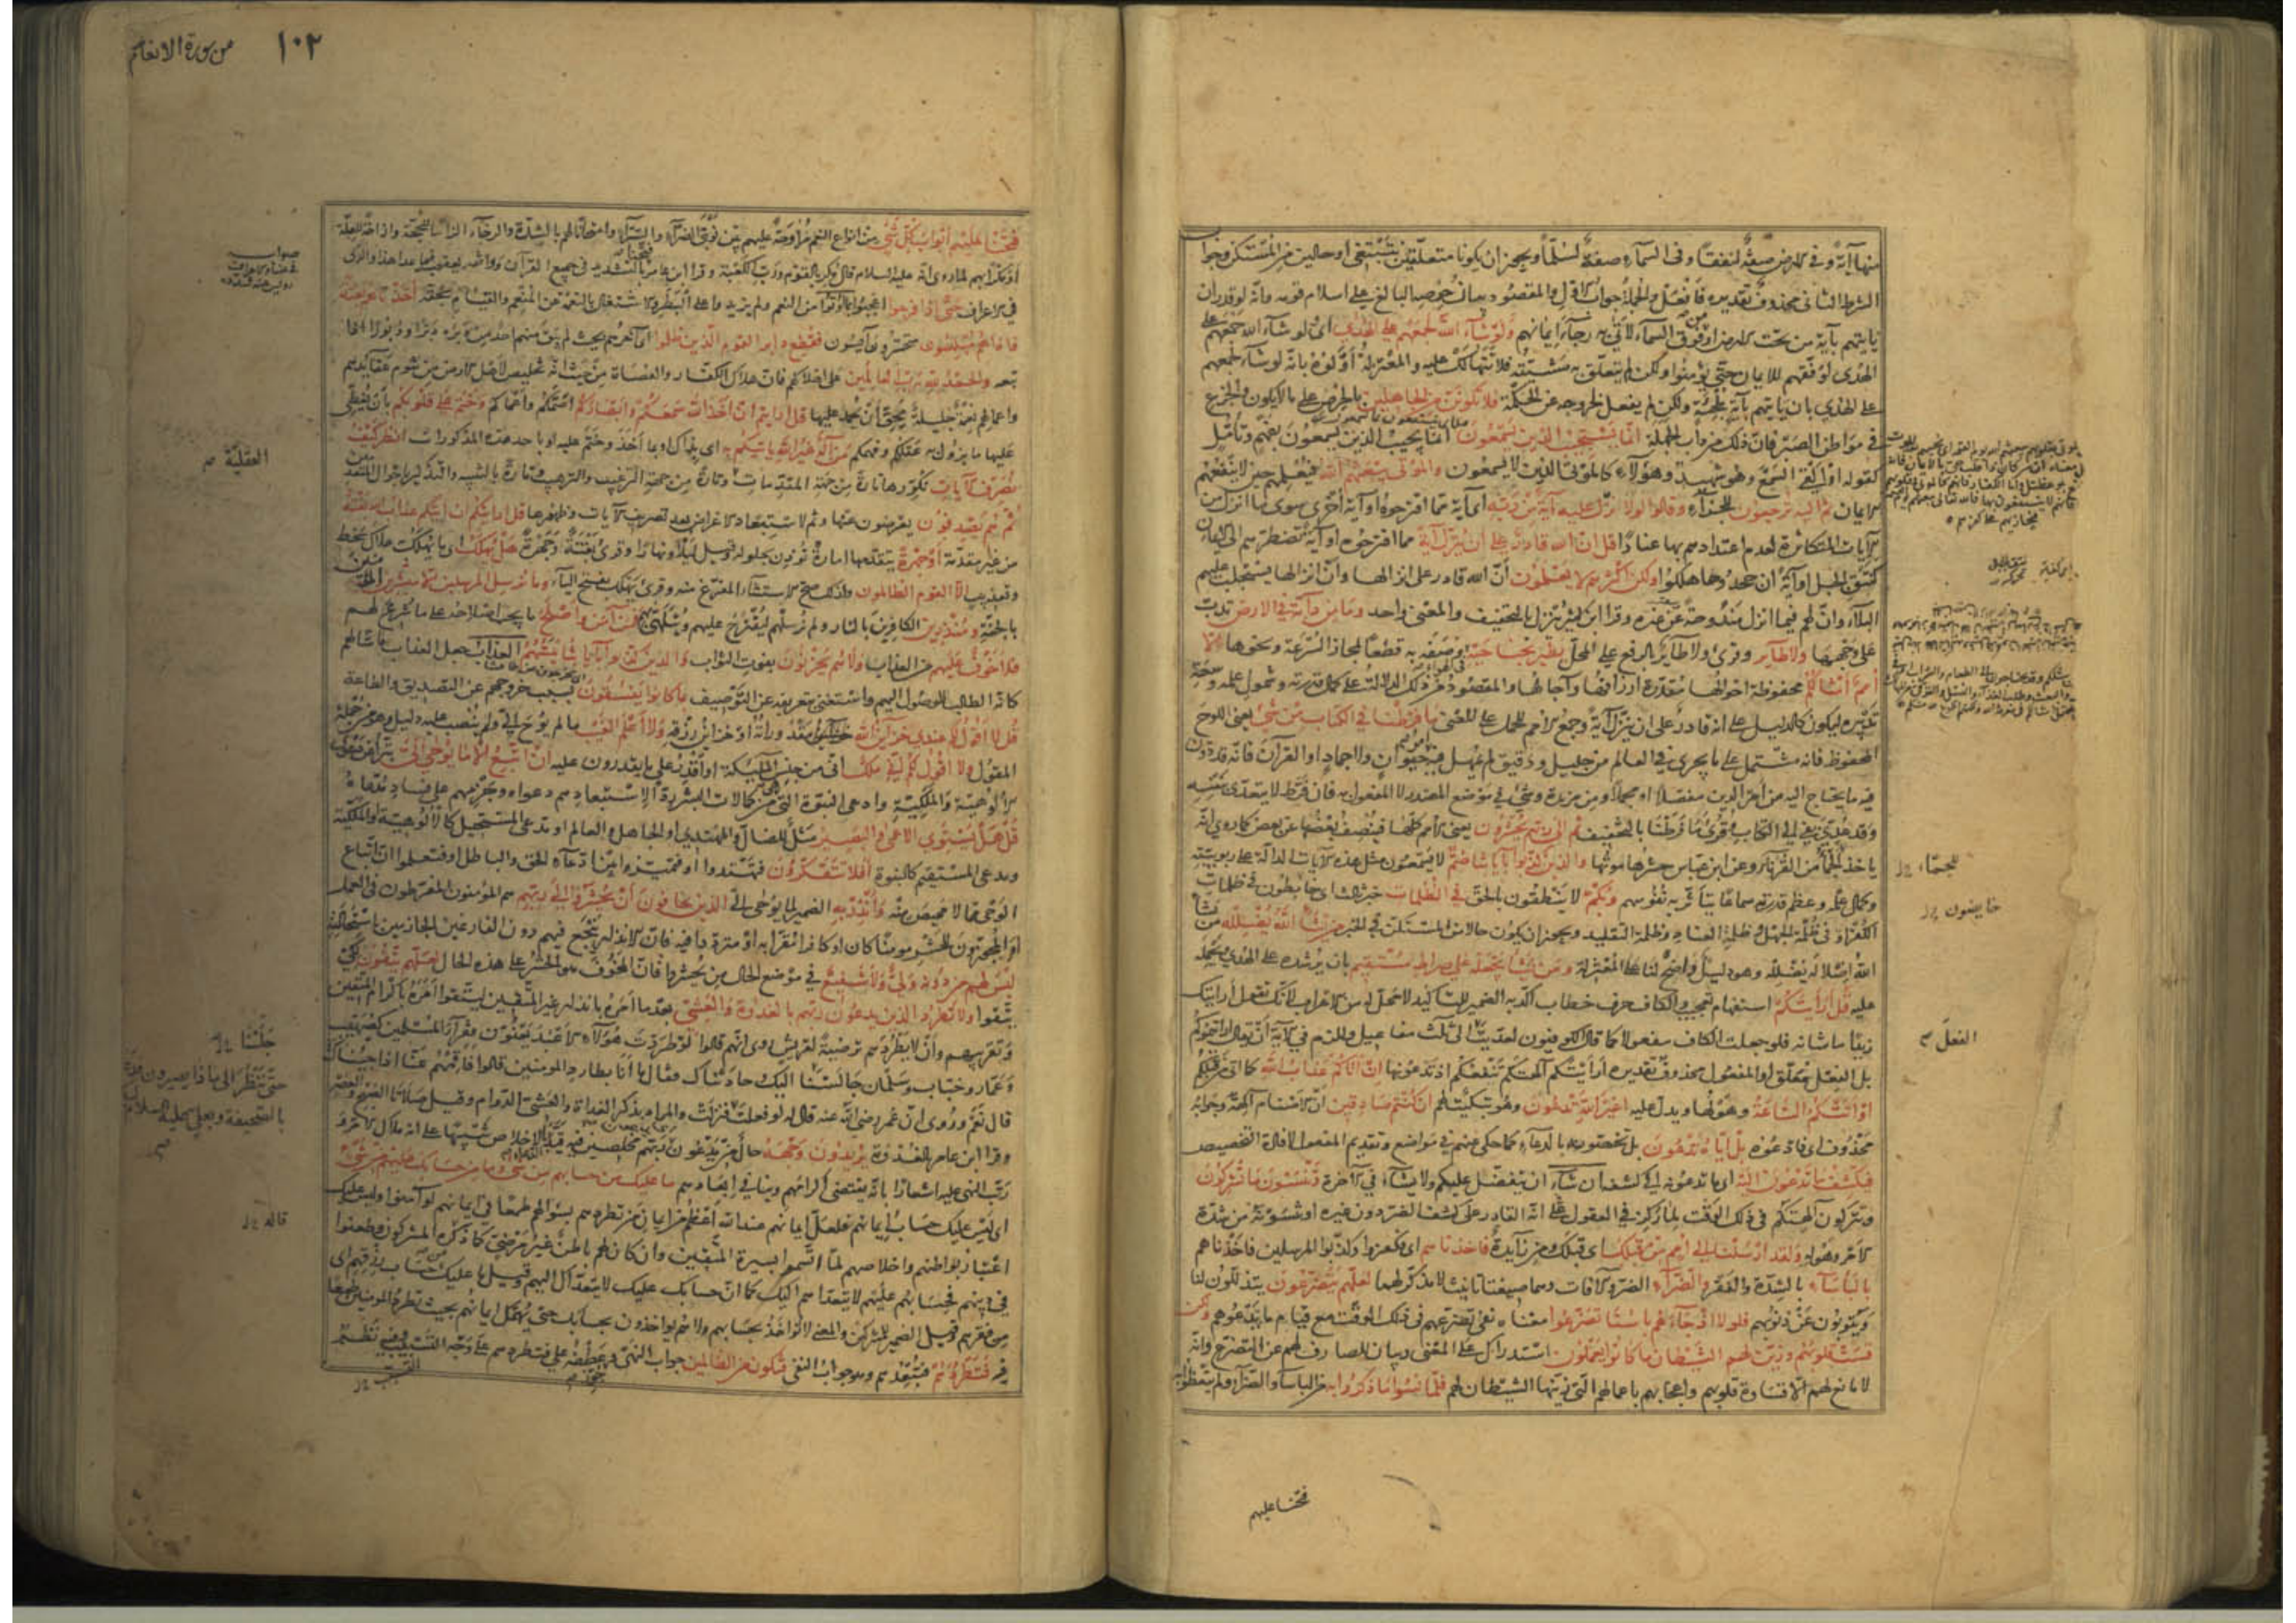 منها آية وفي الارض صفة لنفقا وفي السماء صفة لسلما ويجوز ان يكونا متعلقين بتبتغي او حالين من المستكن وجواب
الشرط الثاني محذوف تقديره فافعل والجملة جواب الاول والمقصود بيان حرصه البالغ على اسلام قومه وانه لو قدر ان
ياتيهم بآية من تحت الارض او من فوق السماء لاتى بها رجاء ايمانهم ولو شاء الله لجمعهم على الهدى اى لو شاء الله جمعهم على
الهدى لوفقهم للايمان حتى يؤمنوا ولكن لم يتعلق به مشيئته فلا تتهالك عليه والمعتزلة اولوه بانه لو شاء لجمعهم
على الهدى بان ياتيهم بآية ملجئة ولكن لم يفعل لخروجه عن الحكمة فلا تكونن من الجاهلين بالحرص على ما لا يكون والجزع
في مواطن الصبر فان ذلك من داب الجهلة انما يستجيب الذين يسمعون انما يجيب الذين يسمعون بفهم وتامل
كقوله او القى السمع وهو شهيد وهؤلاء كالموتى الذين لا يسمعون والموتى يبعثهم الله فيعلمهم حين لا ينفعهم
الايمان ثم اليه ترجعون للجزاء وقالوا لولا نزل عليه آية من ربه اى آية مما اقترحوه او آية اخرى سوى ما انزل من
الآيات المتكاثرة لعدم اعتدادهم بها عنادا قل ان الله قادر على ان ينزل آية مما اقترحوه او آية تضطرهم الى الايمان
كنتق الجبل او آية ان جحدوها هلكوا ولكن اكثرهم لا يعلمون ان الله قادر على انزالها وان انزالها يستجلب عليهم
البلاء وان لهم فيما انزل مندوحة عن غيره وقرا ابن كثير ينزل بالتخفيف والمعنى واحد وما من دابة في الارض تدب
على وجهها ولا طاير وقرئ ولا طاير بالرفع على المحل يطير بجناحيه وصفه به قطعا لمجاز السرعة ونحوها الا
امم امثالكم محفوظة احوالها مقدرة ارزاقها وآجالها والمقصود من ذلك الدلالة على كمال قدرته وشمول علمه وسعة
تدبيره ليكون كالدليل على انه قادر على ان ينزل آية وجمع الامم للحمل على المعنى ما فرطنا في الكتاب من شئ يعنى اللوح
المحفوظ فانه مشتمل على ما يجرى في العالم من جليل ودقيق لم يهمل فيه امر حيوان ولا جماد او القرآن فانه قد دون
فيه ما يحتاج اليه من امر الدين مفصلا او مجملا ومن مزيدة وشئ في موضع المصدر لا المفعول به فان فرط لا يتعدى بنفسه
وقد عدي بفي الى الكتاب وقرئ ما فرطنا بالتخفيف ثم الى ربهم يحشرون يعنى الامم كلها فينصف بعضها عن بعض كما روى انه
ياخذ للجماء من القرناء وعن ابن عباس حشرها موتها والذين كذبوا بآياتنا صم لا يسمعون مثل هذه الآيات الدالة على ربوبيته
وكمال علمه وعظم قدرته سماعا يتاثر به نفوسهم وبكم لا ينطقون بالحق في الظلمات خبر ثالث اى خابطون في ظلمات
الكفر او في ظلمة الجهل وظلمة العناد وظلمة التقليد ويجوز ان يكون حالا من المستكن في الخبر من يشأ الله يضلله من يشأ
الله اضلاله يضلله وهو دليل واضح لنا على المعتزلة ومن يشأ يجعله على صراط مستقيم بان يرشده على الهدى ويحمله
عليه قل ارأيتكم استفهام تعجيب والكاف حرف خطاب اكد به الضمير للتاكيد لا محل له من الاعراب لانك تقول أرايتك
زيدا ما شانه فلو جعلت الكاف مفعولا كما قاله الكوفيون لعديت الى ثلث مفاعيل وللزم في الآية ان يقال ارايتموكم
بل الفعل معلق او المفعول محذوف تقديره أرأيتكم آلهتكم تنفعكم اذ تدعونها ان اتاكم عذاب الله كما اتى من قبلكم
او اتتكم الساعة وهولها ويدل عليه اغير الله تدعون وهو تبكيت لهم ان كنتم صادقين ان الاصنام آلهة وجوابه
محذوف اى فادعوه بل اياه تدعون بل تخصونه بالدعاء كما حكى عنهم في مواضع وتقديم المفعول لافادة التخصيص
فيكشف ما تدعون اليه اى ما تدعونه الى كشفه ان شاء ان يتفضل عليكم ولا يشاء في الآخرة وتنسون ما تشركون
وتتركون آلهتكم في ذلك الوقت لما ركز في العقول على انه القادر على كشف الضر دون غيره او تنسونه من شدة
الامر وهوله ولقد ارسلنا الى امم من قبلك اى قبلك ومن زايدة فاخذناهم اى فكفروا وكذبوا المرسلين فاخذناهم
بالبأساء بالشدة والفقر والضراء الضر والآفات وهما صيغتا تانيث لا مذكر لهما لعلهم يتضرعون يتذللون لنا
ويتوبون عن ذنوبهم فلولا اذ جاءهم باسنا تضرعوا معناه نفى تضرعهم في ذلك الوقت مع قيام ما يدعوهم ولكن
قست قلوبهم وزين لهم الشيطان ما كانوا يعملون استدراك على المعنى وبيان للصارف لهم عن التضرع وانه
لا مانع لهم الا قساوة قلوبهم واعجابهم باعمالهم التى زينها الشيطان لهم فلما نسوا ما ذكروا به من الباساء والضراء ولم يتعظوا به
للجماء
خابطون
الفعل
فتحنا عليهم
من سورة الانعام ١٠٢
فتحنا عليهم ابواب كل شئ من انواع النعم مراوحة عليهم بين نوبتى الضراء والسراء وامتحانا لهم بالشدة والرخاء الزاما للحجة وازاحة للعلة
او مكرا بهم لما روى انه عليه السلام قال مكر بالقوم ورب الكعبة وقرا ابن عامر فتحنا بالتشديد في جميع القرآن ووافقه يعقوب فيما عدا هذا والذى
في الاعراف حتى اذا فرحوا اعجبوا بما اوتوا من النعم ولم يزيدوا على البطر والاشتغال بالنعمة عن المنعم والقيام بحقه اخذناهم بغتة
فاذا هم مبلسون متحسرون آيسون فقطع دابر القوم الذين ظلموا اى آخرهم بحيث لم يبق منهم احد من دبره دبرا ودبورا اذا
تبعه والحمد لله رب العالمين على اهلاكهم فان هلاك الكفار والعصاة من حيث انه تخليص لاهل الارض من شؤم عقايدهم
واعمالهم نعمة جليلة يحق ان يحمد عليها قل ارايتم ان اخذ الله سمعكم وابصاركم اصمكم واعماكم وختم على قلوبكم بان يغطى
عليها ما يزول به عقلكم وفهمكم من اله غير الله ياتيكم به اى بذاك او بما اخذ وختم عليه او باحد هذه المذكورات انظر كيف
نصرف الآيات نكررها تارة من جهة المقدمات وتارة من جهة الترغيب والترهيب وتارة بالتنبيه والتذكير باحوال المتقدمين
ثم هم يصدفون يعرضون عنها وثم لاستبعاد الاعراض بعد تصريف الآيات وظهورها قل ارايتكم ان اتيكم عذاب الله بغتة
من غير مقدمة او جهرة يتقدمها امارة تؤذن بحلوله وقيل ليلا ونهارا وقرئ بغتة وجهرة هل يهلك اى ما يهلك هلاك سخط
وتعذيب الا القوم الظالمون ولذلك صح الاستثناء المفرغ منه وقرئ يهلك بفتح الياء وما نرسل المرسلين الا مبشرين المؤمنين
بالجنة ومنذرين الكافرين بالنار ولم نرسلهم ليقترح عليهم ويتلهى بهم فمن آمن واصلح ما يجب اصلاحه على ما شرع لهم
فلا خوف عليهم من العذاب ولا هم يحزنون بفوت الثواب والذين كذبوا بآياتنا يمسهم العذاب جعل العذاب ماسا لهم
كانه الطالب للوصول اليهم واستغنى بتعريفه عن التوصيف بما كانوا يفسقون بسبب خروجهم عن التصديق والطاعة
قل لا اقول لكم عندى خزاين الله مقدوراته او خزاين رزقه ولا اعلم الغيب ما لم يوح الى ولم ينصب عليه دليل وهو من جملة
المقول ولا اقول لكم انى ملك انى من جنس الملئكة او اقدر على ما يقدرون عليه ان اتبع الا ما يوحى الى تبرأ من دعوى
الالوهية والملكية وادعى النبوة التى هى من كمالات البشر ردا لاستبعادهم دعواه وجزمهم على فساد مدعاه
قل هل يستوى الاعمى والبصير مثل للضال والمهتدى او الجاهل والعالم او مدعى المستحيل كالالوهية والملكية
ومدعى المستقيم كالنبوة افلا تتفكرون فتهتدوا او فتميزوا بين ادعاء الحق والباطل او فتعلموا ان اتباع
الوحى مما لا محيص عنه وانذر به الضمير لما يوحى الى الذين يخافون ان يحشروا الى ربهم هم المؤمنون المفرطون في العمل
او المجوزون للحشر مومنا كان او كافرا مقرا به او مترددا فيه فان الانذار ينجع فيهم دون الفارغين الجازمين باستحالته
ليس لهم من دونه ولى ولا شفيع في موضع الحال من يحشروا فان المخوف هو الحشر على هذه الحال لعلهم يتقون لكى
يتقوا ولا تطرد الذين يدعون ربهم بالغداوة والعشى بعد ما امره بانذار غير المتقين ليتقوا امره باكرام المتقين
وتقريبهم وان لا يطردهم ترضية لقريش روى انهم قالوا لو طردت هؤلاء الاعبد يعنون فقراء المسلمين كصهيب
وعمار وخباب وسلمان جالسنا اليك وحادثناك فقال ما انا بطارد المومنين قالوا فاقمهم عنا اذا جيناك
قال نعم وروى ان عمر رضى الله عنه قال له لو فعلت فنزلت والمراد بذكر الغداة والعشى الدوام وقيل صلاتا الصبح والعصر
وقرا ابن عامر بالغدوة يريدون وجهه حال من يدعون اى يدعون ربهم مخلصين فيه قيد الدعاء بالاخلاص تنبيها على انه ملاك الامر و
رتب النهى عليه اشعارا بانه يقتضى اكرامهم وينافى ابعادهم ما عليك من حسابهم من شئ وما من حسابك عليهم من شئ
اى ليس عليك حساب ايمانهم فلعل ايمانهم عند الله اعظم من ايمان من تطردهم بسؤالهم طمعا في ايمانهم لو آمنوا وليس عليك
اعتبار بواطنهم واخلاصهم لما اتسموا بسيرة المتقين وان كان لهم باطن غير مرضى كما ذكره المشركون وطعنوا
في دينهم فحسابهم عليهم لا يتعداهم اليك كما ان حسابك عليك لا يتعداك اليهم وقيل ما عليك من حساب رزقهم اى
من فقرهم وقيل الضمير للمشركين والمعنى لا تؤاخذ بحسابهم ولا هم يواخذون بحسابك حتى يهمك ايمانهم بحيث تطرد المومنين طمعا
فيه فتطردهم فتبعدهم وهو جواب النفى فتكون من الظالمين جواب النهى ويجوز عطفه على فتطردهم على وجه التسبب وفيه نظر
العقلية
جلسنا
قاله
التسبب